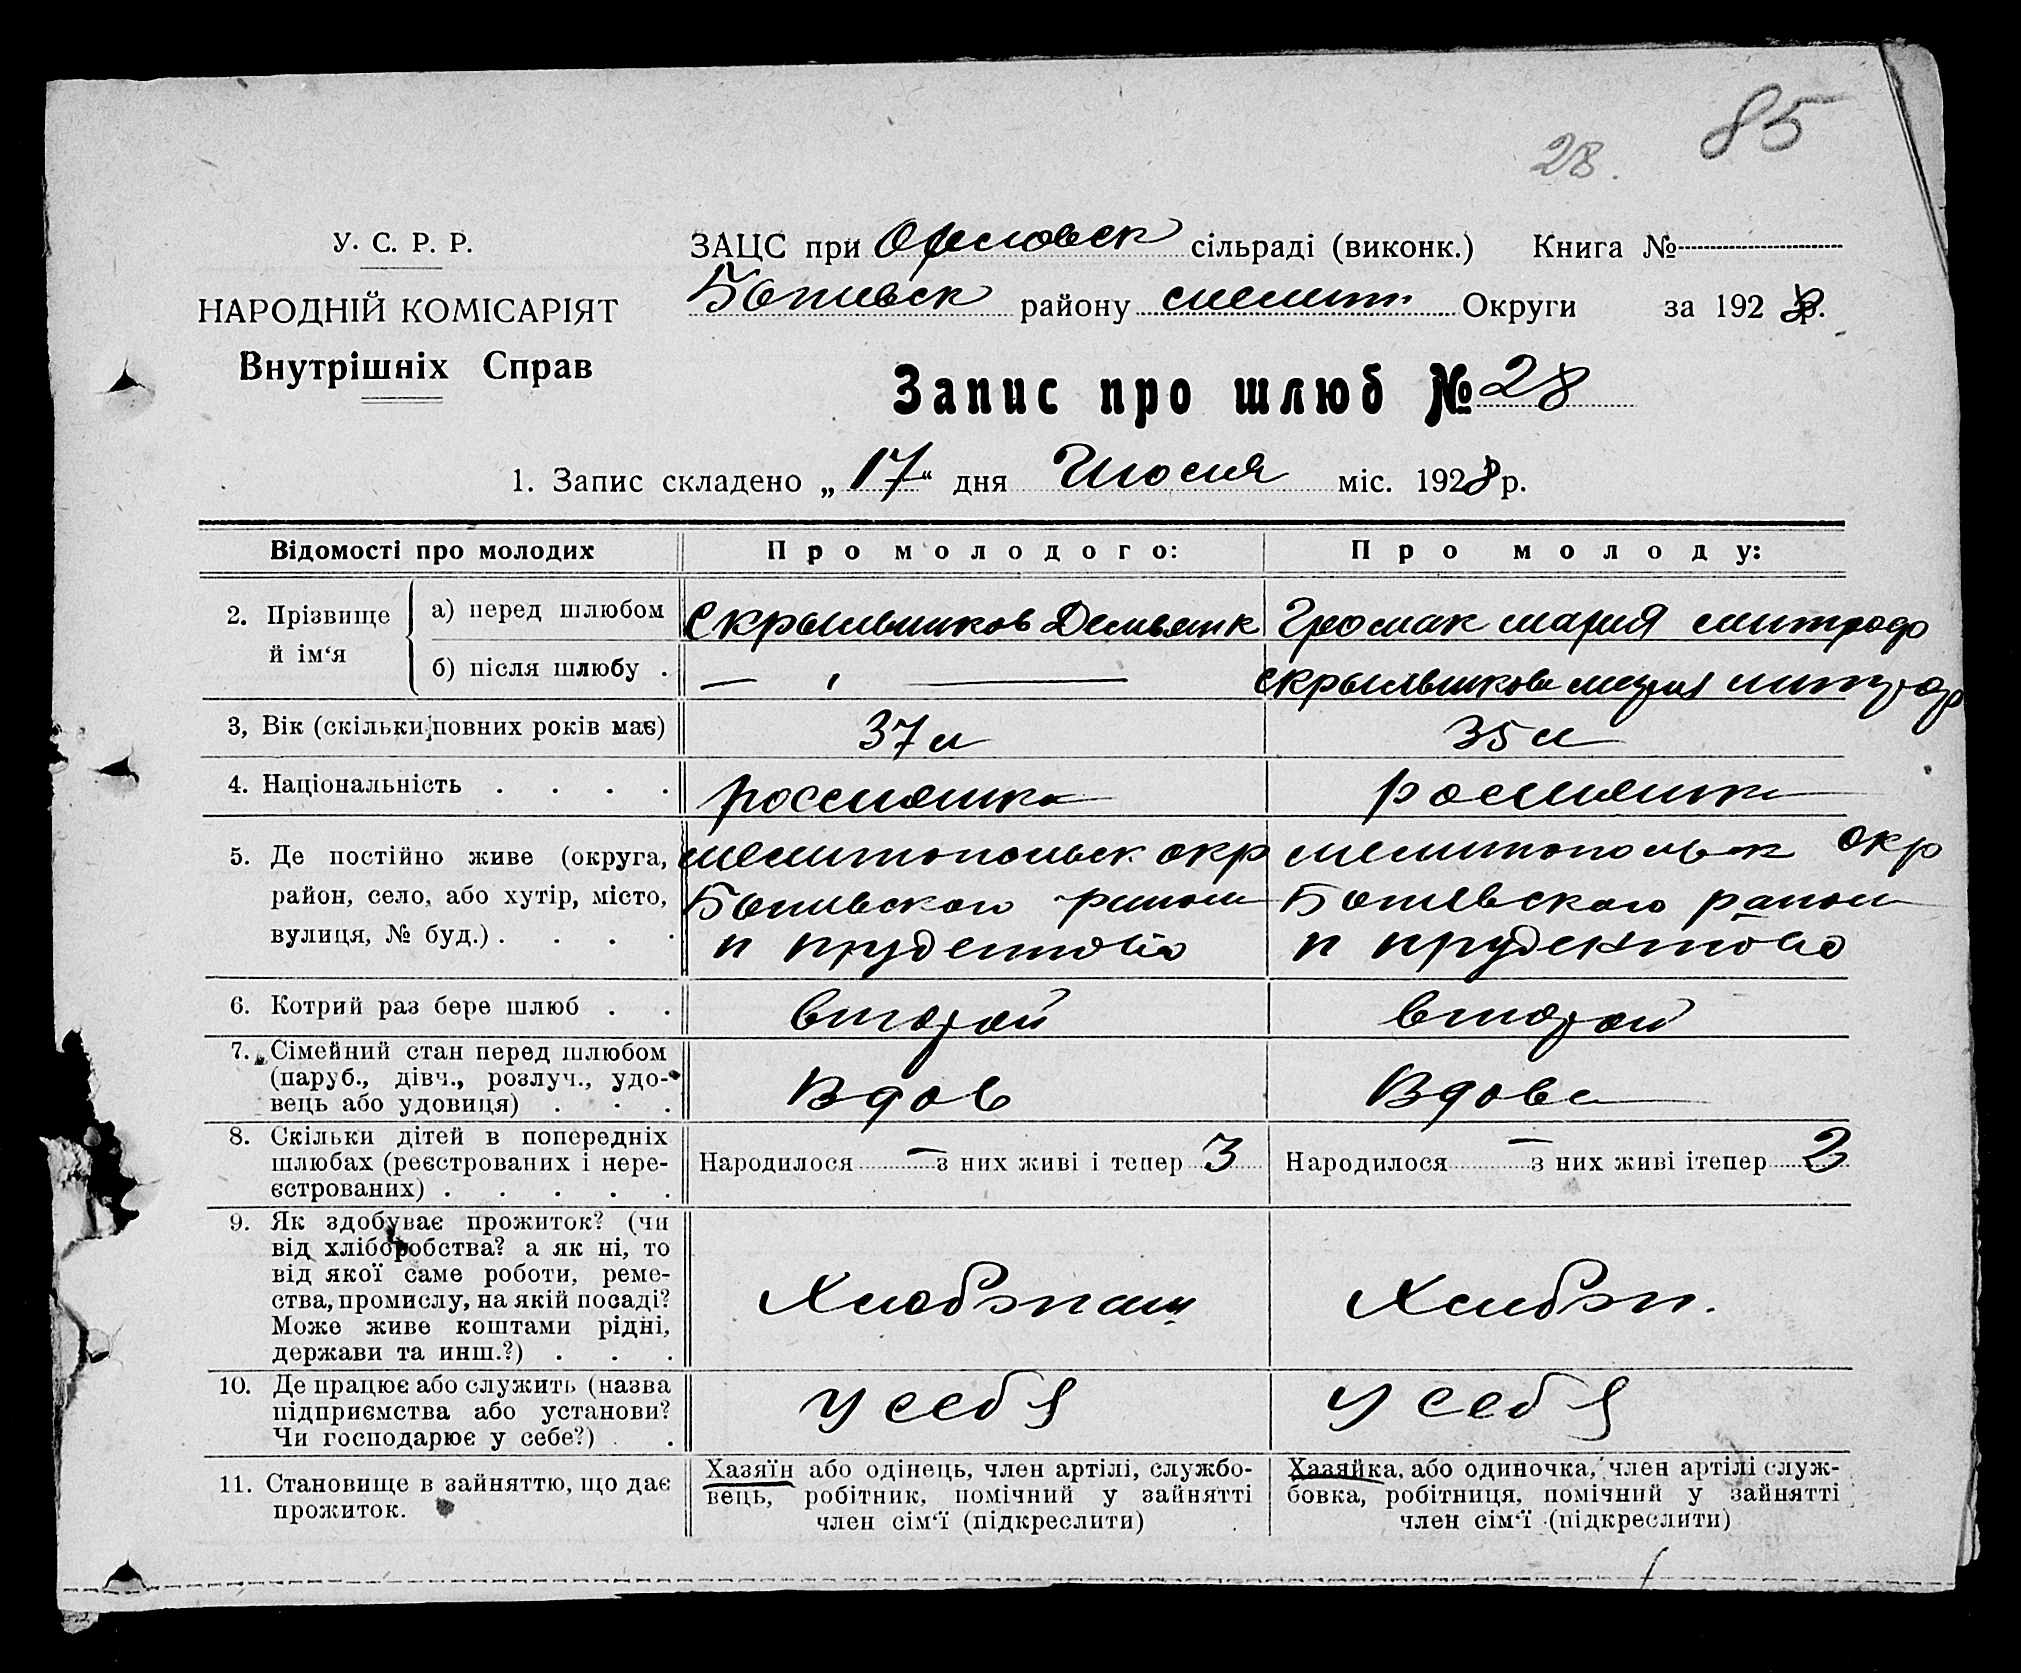 85
28.
У. С. Р. Р.
НАРОДНІЙ КОМІСАРІЯТ
Внутрішніх Справ
ЗАЦС при Орловск сільраді (виконк.) Книга №
Ботиевск району мелит Округи за 1928 р.
Запис про шлюб № 28
1. Запис складено „ 17 “ дня Июля міс. 1928 р.
Відомості про молодих Про молодого: Про молоду:
2. Прізвище й ім‘я а) перед шлюбом Скрыльников Демьян к Громак мария митрофо
б) після шлюбу . — ‚ — скрыльникова мария митроф
3, Вік (скільки повних років має) 37 л 35 л
4. Національність . . . . россиянка россиянка
5. Де постійно живе (округа, мелитопольск окр мелитопольск окр
район, село, або хутір, місто, Ботиевского района Ботиевского района
вулиця, № буд.) . . . . п прудентово п прудентово
6. Котрий раз бере шлюб . . второй второй
7. Сімейний стан перед шлюбом
(паруб., дівч., розлуч., удо-
вець або удовиця) . . . Вдов Вдова
8. Скільки дітей в попередніх
шлюбах (реєстрованих і нере-
єстрованих) . . . . . Народилося — з них живі і тепер 3 Народилося — з них живі ітепер 2
9. Як здобуває прожиток? (чи
від хліборобства? а як ні, то
від якої саме роботи, реме-
ства, промислу, на якій посаді?
Може живе коштами рідні,
держави та инш.?) . . . Хлебопаш Хлебоп.
10. Де працює або служить (назва
підприємства або установи?
Чи господарює у себе?) . . у себя у себя
11. Становище в зайняттю, що дає
прожиток.
Хазяїн або одінець, член артілі, службо-
вець, робітник, помічний у зайнятті
член сім‘ї (підкреслити)
Хазяйка, або одиночка, член артілі служ-
бовка, робітниця, помічний у зайнятті
член сім‘ї (підкреслити)